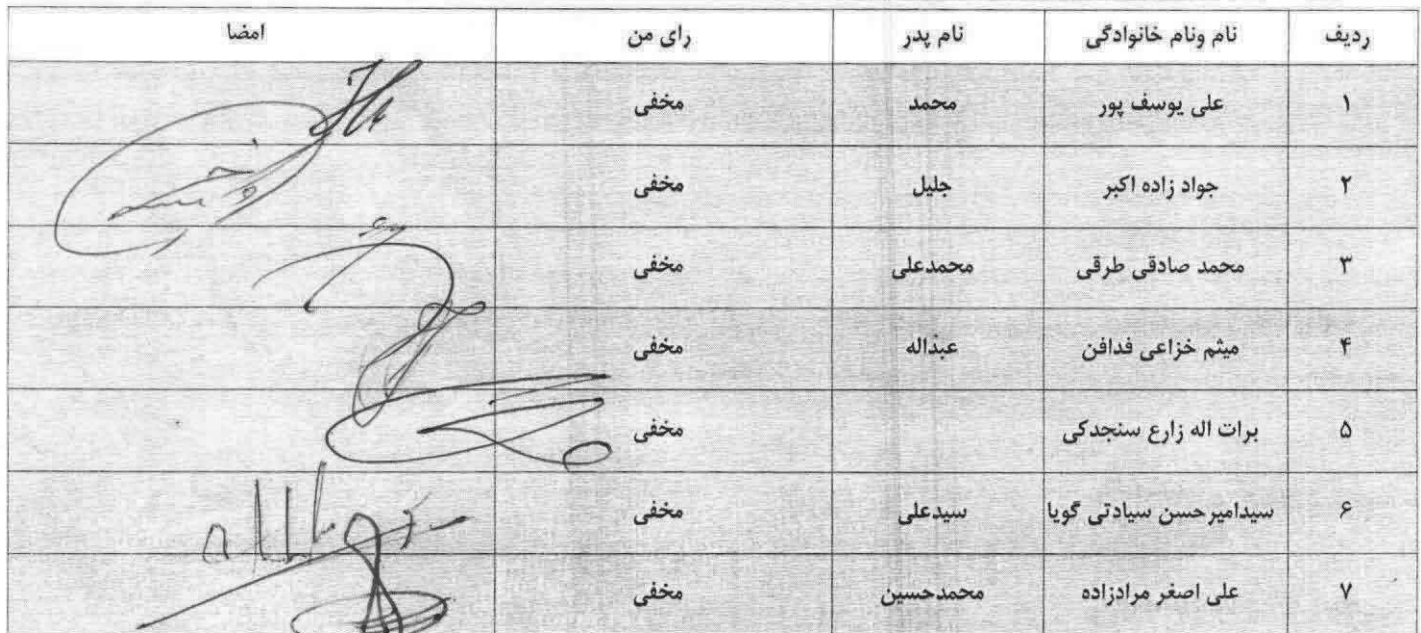 ردیف نام ونام خانوادگی نام پدر رای من امضا
۱ علی یوسف پور محمد مخفی
۲ جواد زاده اکبر جلیل مخفی
۳ محمد صادقی طرقی محمدعلی مخفی
۴ میثم خزاعی فدافن عبداله مخفی
۵ برات اله زارع سنجدکی مخفی
۶ سیدامیرحسن سیادتی گویا سیدعلی مخفی
۷ علی اصغر مرادزاده محمدحسین مخفی